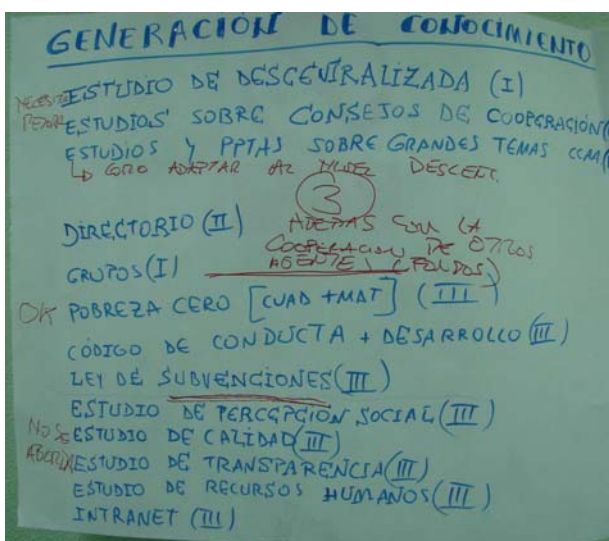 GENERACIÓN DE CONOCIMIENTO
ESTUDIO DE DESCENTRALIZADA (I)
ESTUDIOS SOBRE CONSEJOS DE COOPERACIÓN (
ESTUDIOS Y PPTAS SOBRE GRANDES TEMAS CCAA (
ADAPTAR AL NIVEL DESCENT.
3
DIRECTORIO (II)
ADEMAS CON LA
COOPERACION DE OTROS
AGENTES (FONDOS)
GRUPOS (I)
OK POBREZA CERO [CUAD + MAT] (III)
CÓDIGO DE CONDUCTA + DESARROLLO (III)
LEY DE SUBVENCIONES (III)
ESTUDIO DE PERCEPCIÓN SOCIAL (III)
NO SE ESTUDIO DE CALIDAD (III)
ABORDA ESTUDIO DE TRANSPARENCIA (III)
ESTUDIO DE RECURSOS HUMANOS (III)
INTRANET (III)